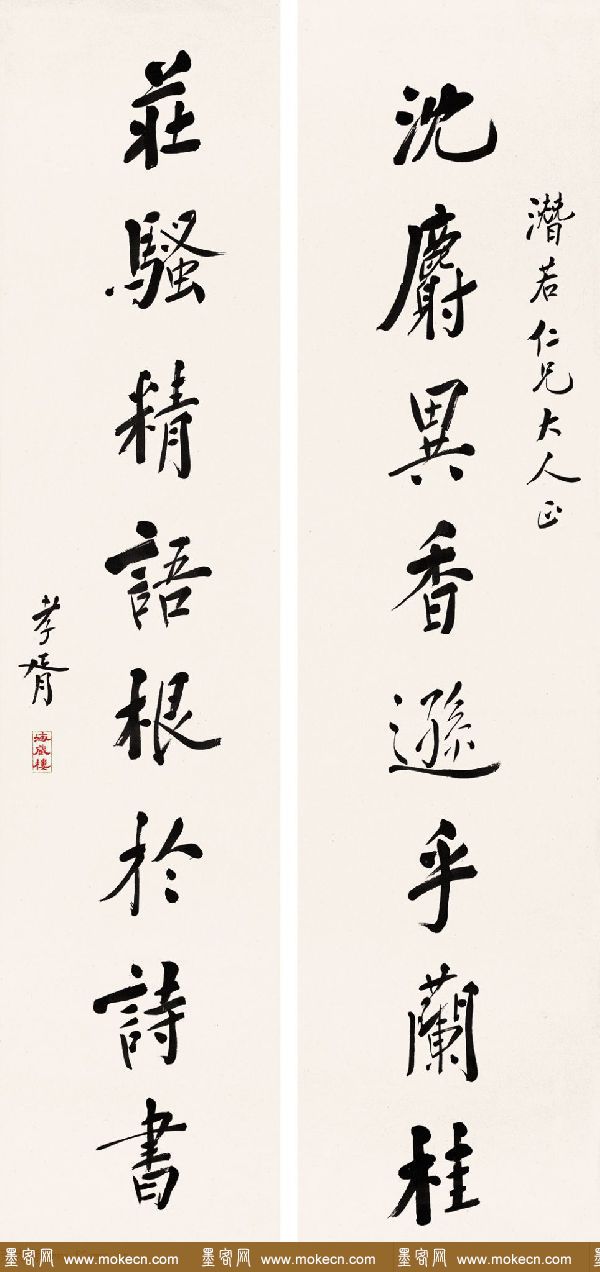 潛若仁兄大人正
沈麝異香遜乎蘭桂
莊騷精語根於詩書
孝胥
海藏樓
墨客网 www.mokecn.com 墨客网 www.mokecn.com 墨客网 www.mokecn.com 墨